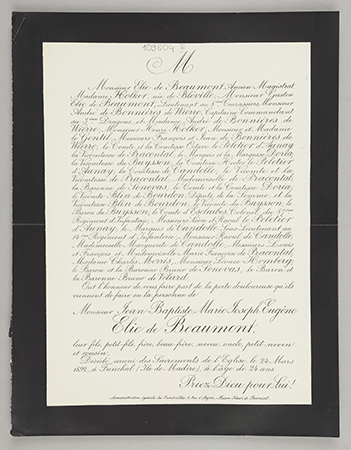 109604
M
Monsieur Elie de Beaumont, Ancien Magistrat,
Madame Holker, née de Biéville, Monsieur Gaston
Elie de Beaumont, Lieutenant au 8ème Cuirassiers, Monsieur
André de Bonnières de Wierre, Capitaine Commandant
au 3ème Dragons, et Madame André de Bonnières de
Wierre, Monsieur Henry Holker, Monsieur et Madame
le Gentil, Messieurs François et Jean de Bonnières de
Wierre, le Comte et la Comtesse Octave le Peletier d'Aunay,
la Vicomtesse de Tracontal, le Marquis et la Marquise Doria,
le Vicomte du Buysson, le Comte Hector le Peletier
d'Aunay, la Comtesse de Candolle, le Vicomte et la
Vicomtesse de Tracontal, Mademoiselle de Tracontal,
la Baronne de Senevas, le Comte et la Comtesse Doria,
le Vicomte Blin de Bourdon, Député de la Somme, et la
Vicomtesse Blin de Bourdon, le Vicomte du Buysson, le
Baron du Buysson, le Comte d'Esclaibes, Colonel du 87ème
Régiment d'Infanterie, Messieurs Léon et Raoul le Peletier
d'Aunay, le Marquis de Candolle, Sous-Lieutenant au
14ème Régiment d'Infanterie, Monsieur Raoul de Candolle,
Mademoiselle Marguerite de Candolle, Messieurs Louis
et François et Mademoiselle Marie-Françoise de Tracontal,
Madame Charles Morris, Monsieur Léonce Homberg,
le Baron et la Baronne Bruno de Senevas, le Baron et
la Baronne Bruno de Vélard,
Ont l'honneur de vous faire part de la perte douloureuse qu'ils
viennent de faire en la personne de
Monsieur Jean-Baptiste-Marie-Joseph-Eugène
Elie de Beaumont,
leur fils, petit-fils, frère, beau-frère, neveu, oncle, petit-neveu
et cousin,
Décédé, muni des Sacrements de l'Eglise, le 24 Mars
1893, à Funchal (Ile de Madère), à l'âge de 24 ans.
Priez Dieu pour Lui!